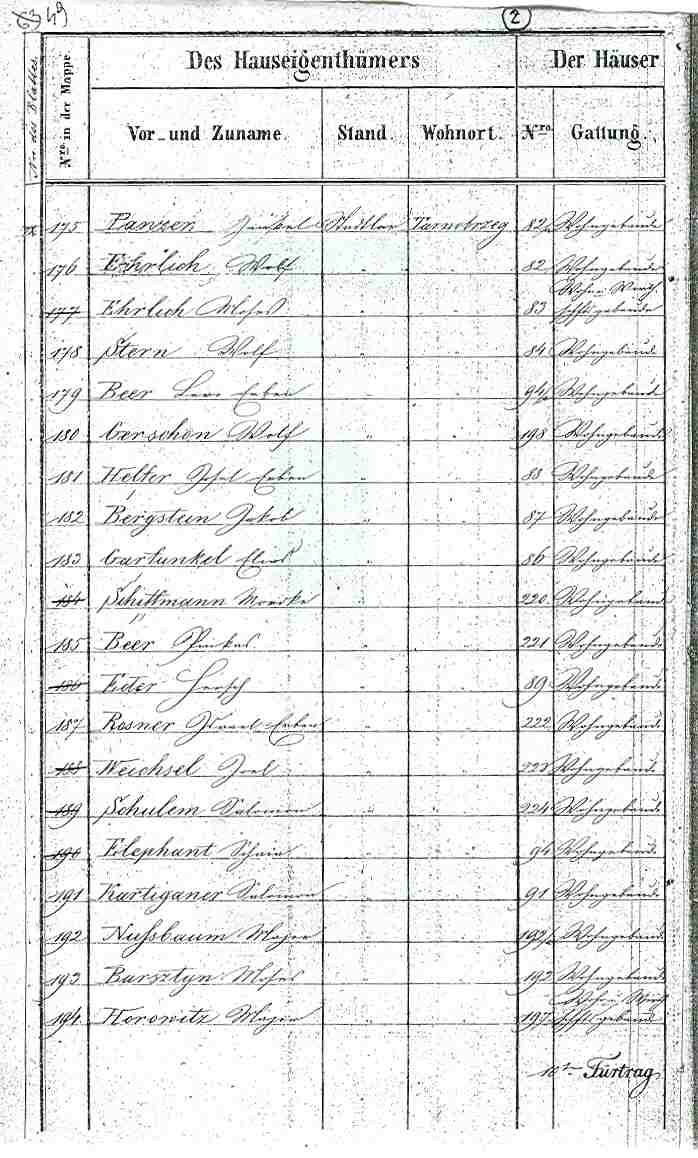 49
2
Des Hauseigenthümers Der Häuser
Nro des Blattes Nro in der Mappe Vor- und Zuname. Stand. Wohnort. Nro Gattung.
175 Panzer Tarnobrzeg 82 Wohngebäude
176 Ehrlich Wolf " " 82 Wohngebäude
177 Ehrlich Moses " " 83 Wohn u. Wirth
schftsgebäude
178 Stern Wolf " " 84 Wohngebäude
179 Beer Erben " " 94 Wohngebäude
180 Gerschon Wolf " " 198 Wohngebäude
181 Helter Josel Erben " " 88 Wohngebäude
182 Bergstein Jakob " " 87 Wohngebäude
183 Garfunkel " " 86 Wohngebäude
184 Schittmann Moschke " " 220 Wohngebäude
185 Beer Pinkas " " 221 Wohngebäude
186 Eder Hersch " " 89 Wohngebäude
187 Rosner Israel Erben " " 222 Wohngebäude
188 Weichsel Joel " " 223 Wohngebäude
189 Schulem Salomon " " 224 Wohngebäude
190 Elephant " " 94 Wohngebäude
191 Kartiganer Salomon " " 91 Wohngebäude
192 Nussbaum Majer " " 192 Wohngebäude
193 Bursztyn Moses " " 193 Wohngebäude
194 Horowitz Majer " " 197 Wohn u. Wirth
schftsgebäude
Fürtrag